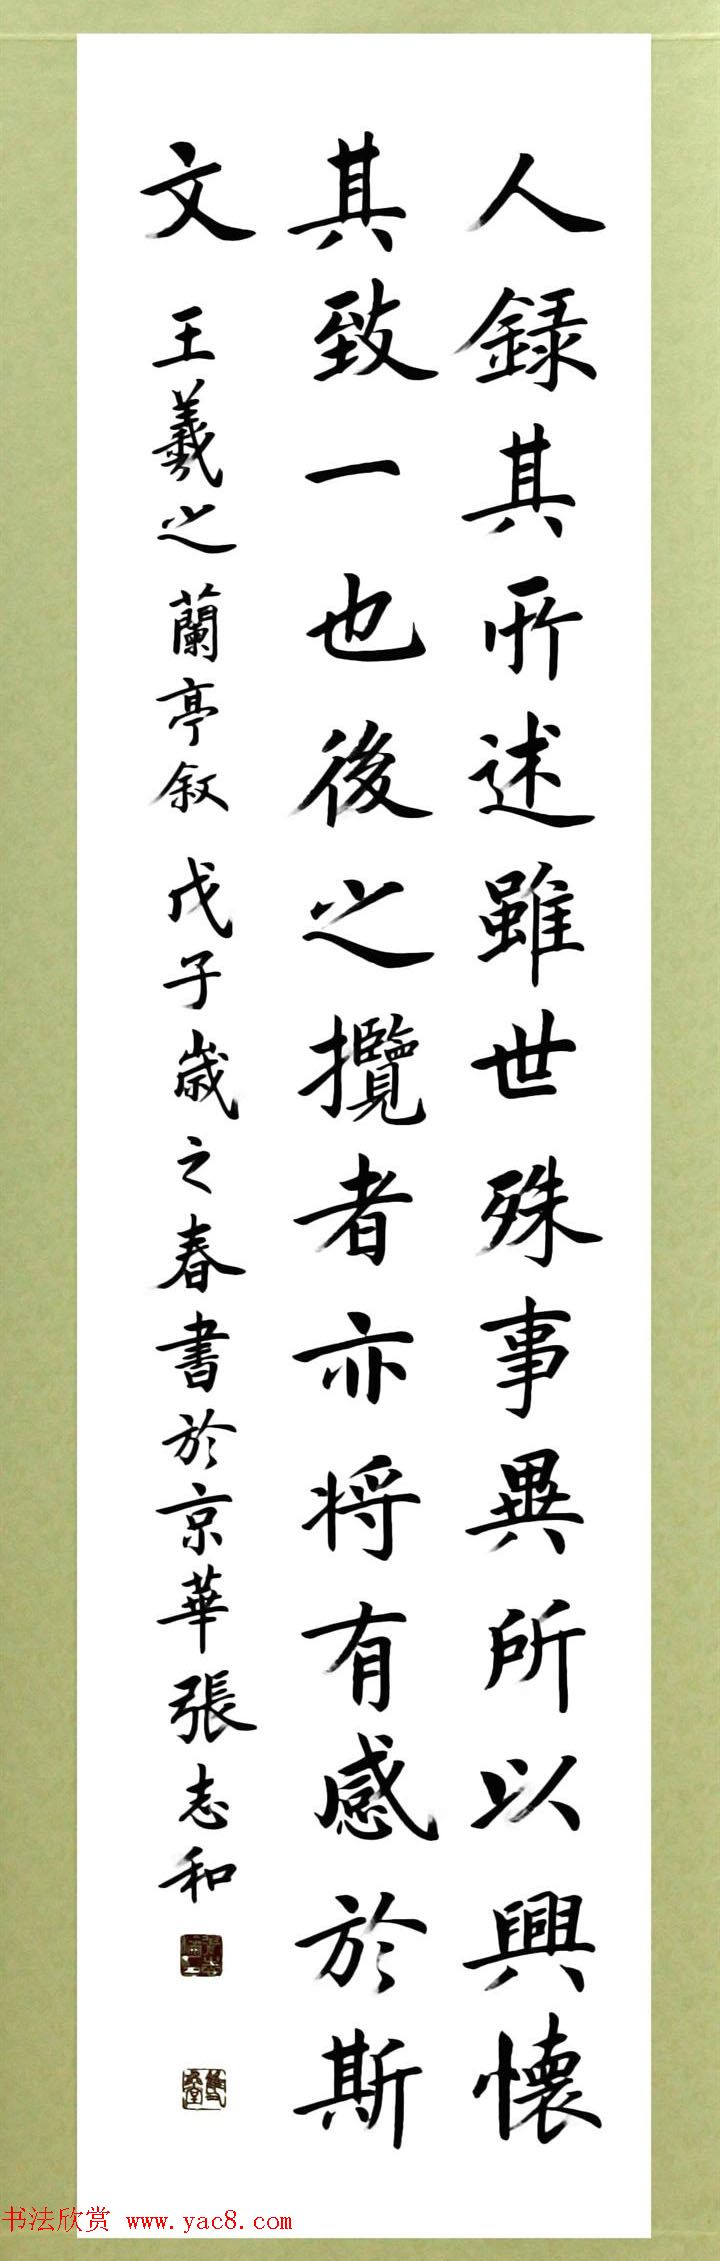 人錄其所述雖世殊事異所以興懷
其致一也後之攬者亦将有感於斯
文 王羲之 蘭亭叙 戊子歲之春書於京華張志和
书法欣赏 www.yac8.com